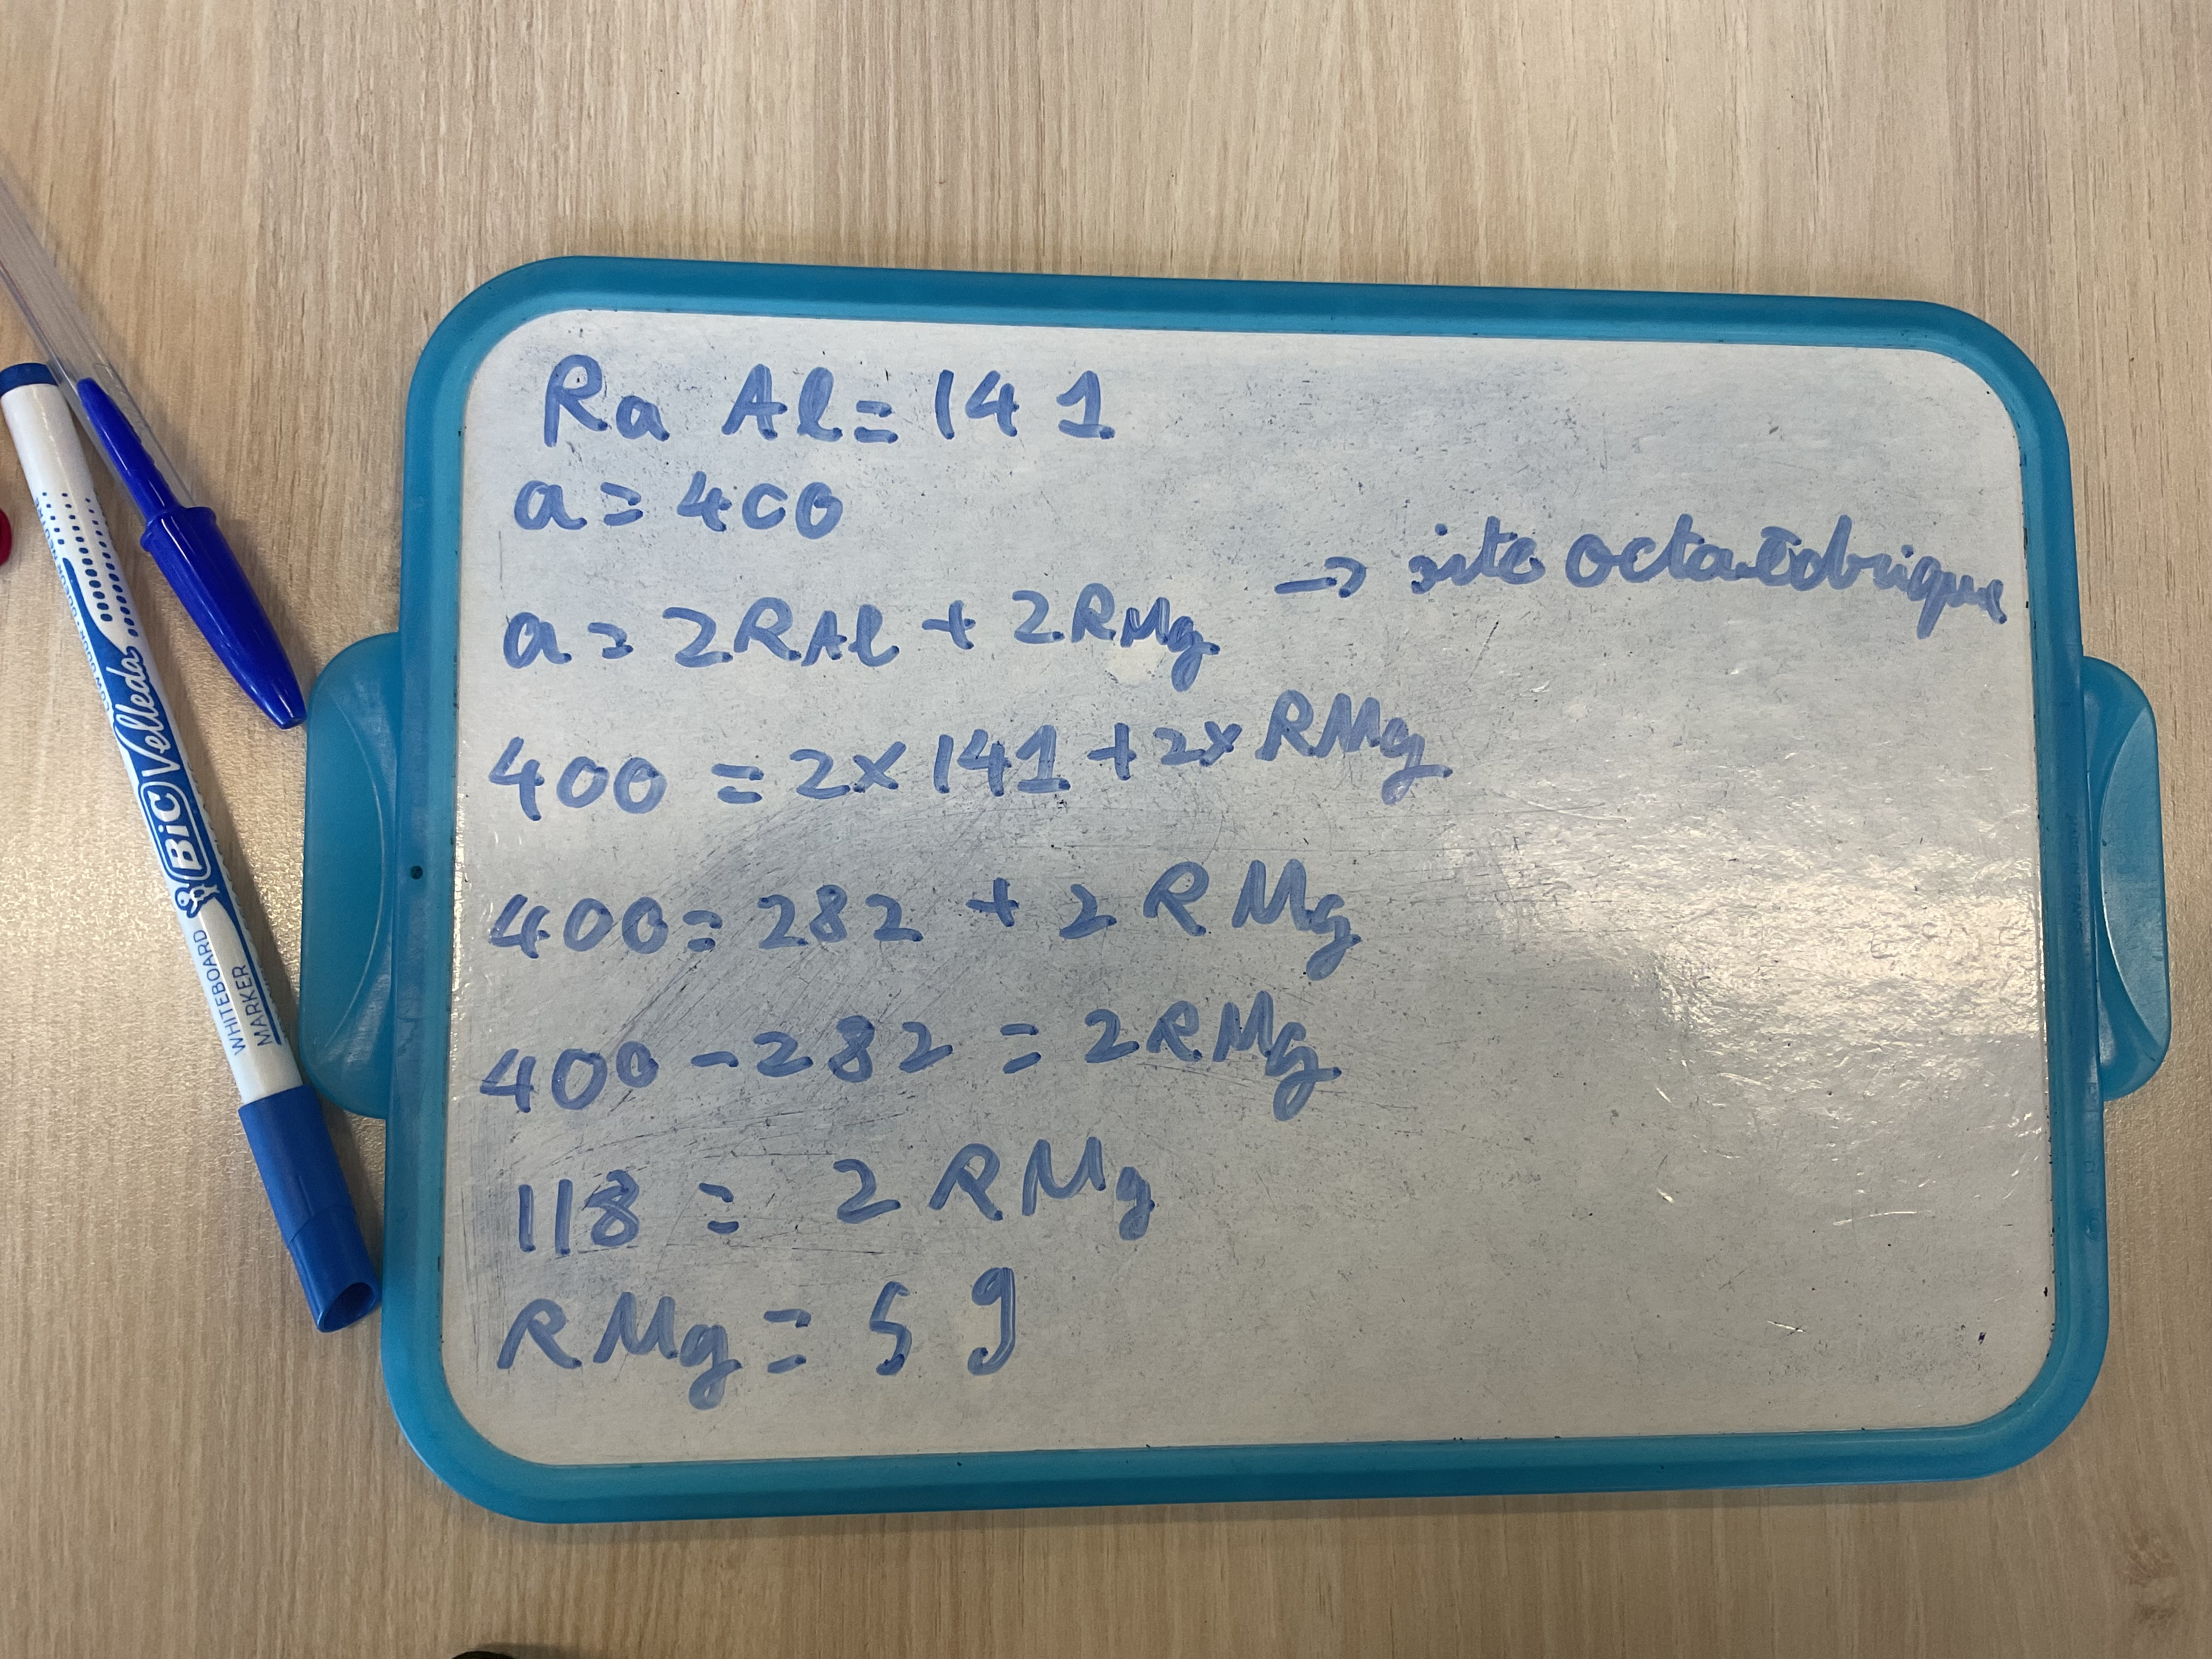 Ra Al = 141
a = 400
a = 2RAl + 2RMg → site octaédrique
400 = 2x141 + 2x RMg
400 = 282 + 2 R Mg
400 - 282 = 2RMg
118 = 2 RMg
RMg = 59
BiC Velleda
WHITEBOARD
MARKER